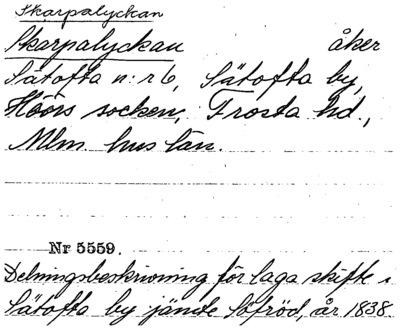 Skarpalyckan
Skarpalyckan åker
Sätofta n:r 6, Sätofta by,
Höörs socken, Frosta hd.,
Mlm. hus län.
Nr 5559.
Delningsbeskrivning för laga skifte i
Sätofta by jämte Löfröd, år 1838